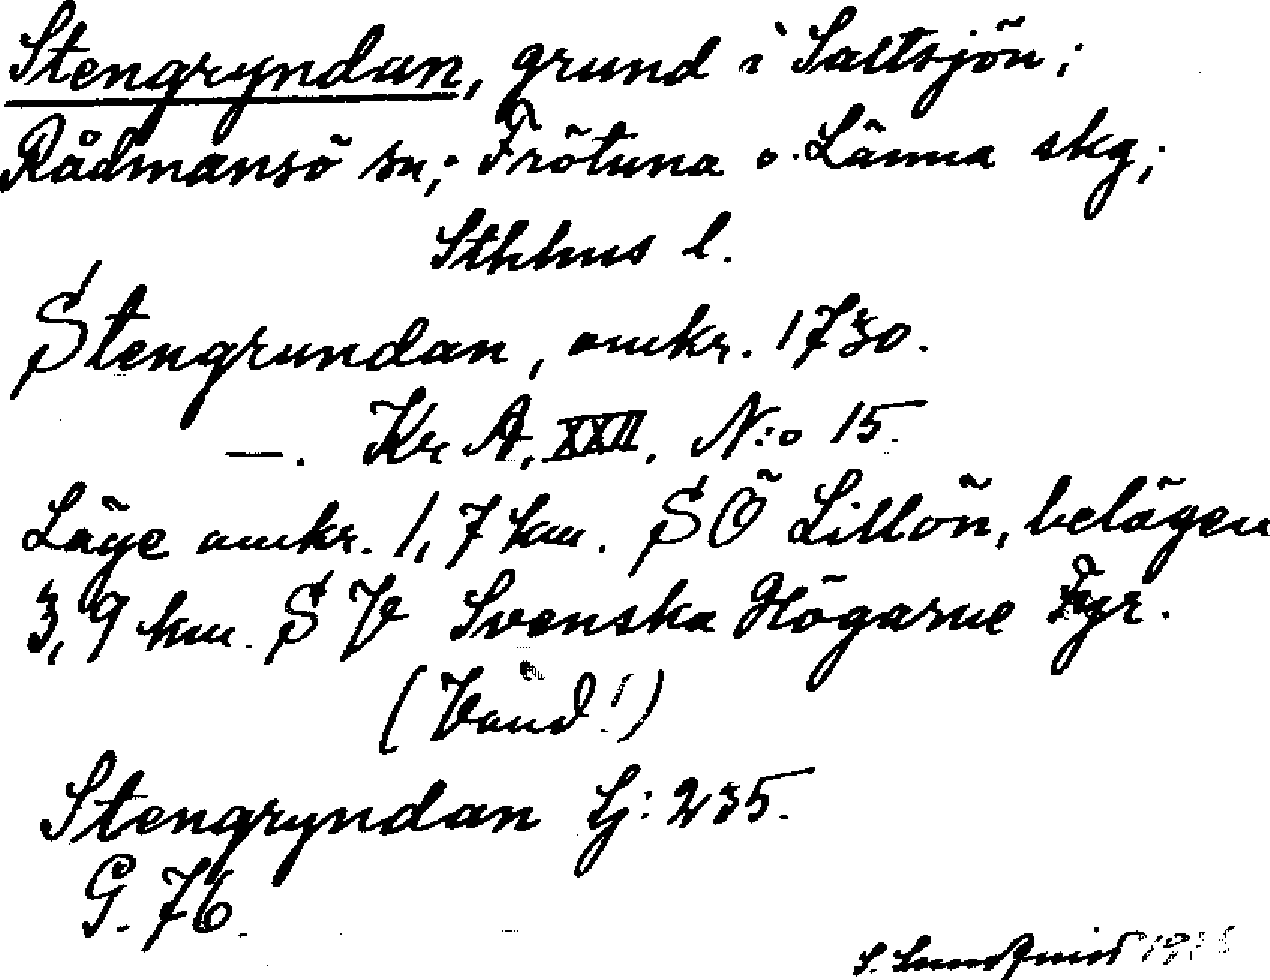 Stengryndan, grund i Saltsjön;
Rådmansö sn; Frötuna o. Länna skg;
Sthhus l.
Stengrundan, omkr. 1730.
—. Kr. A. XXII. N:o 15.
Läge omkr. 1,7 km. SÖ Lillön, belägen
3,9 km. SV Svenska Högarne Fyr.
(Vänd!)
Stengryndan Gj: 235.
G. 76.
S. Lundqvist